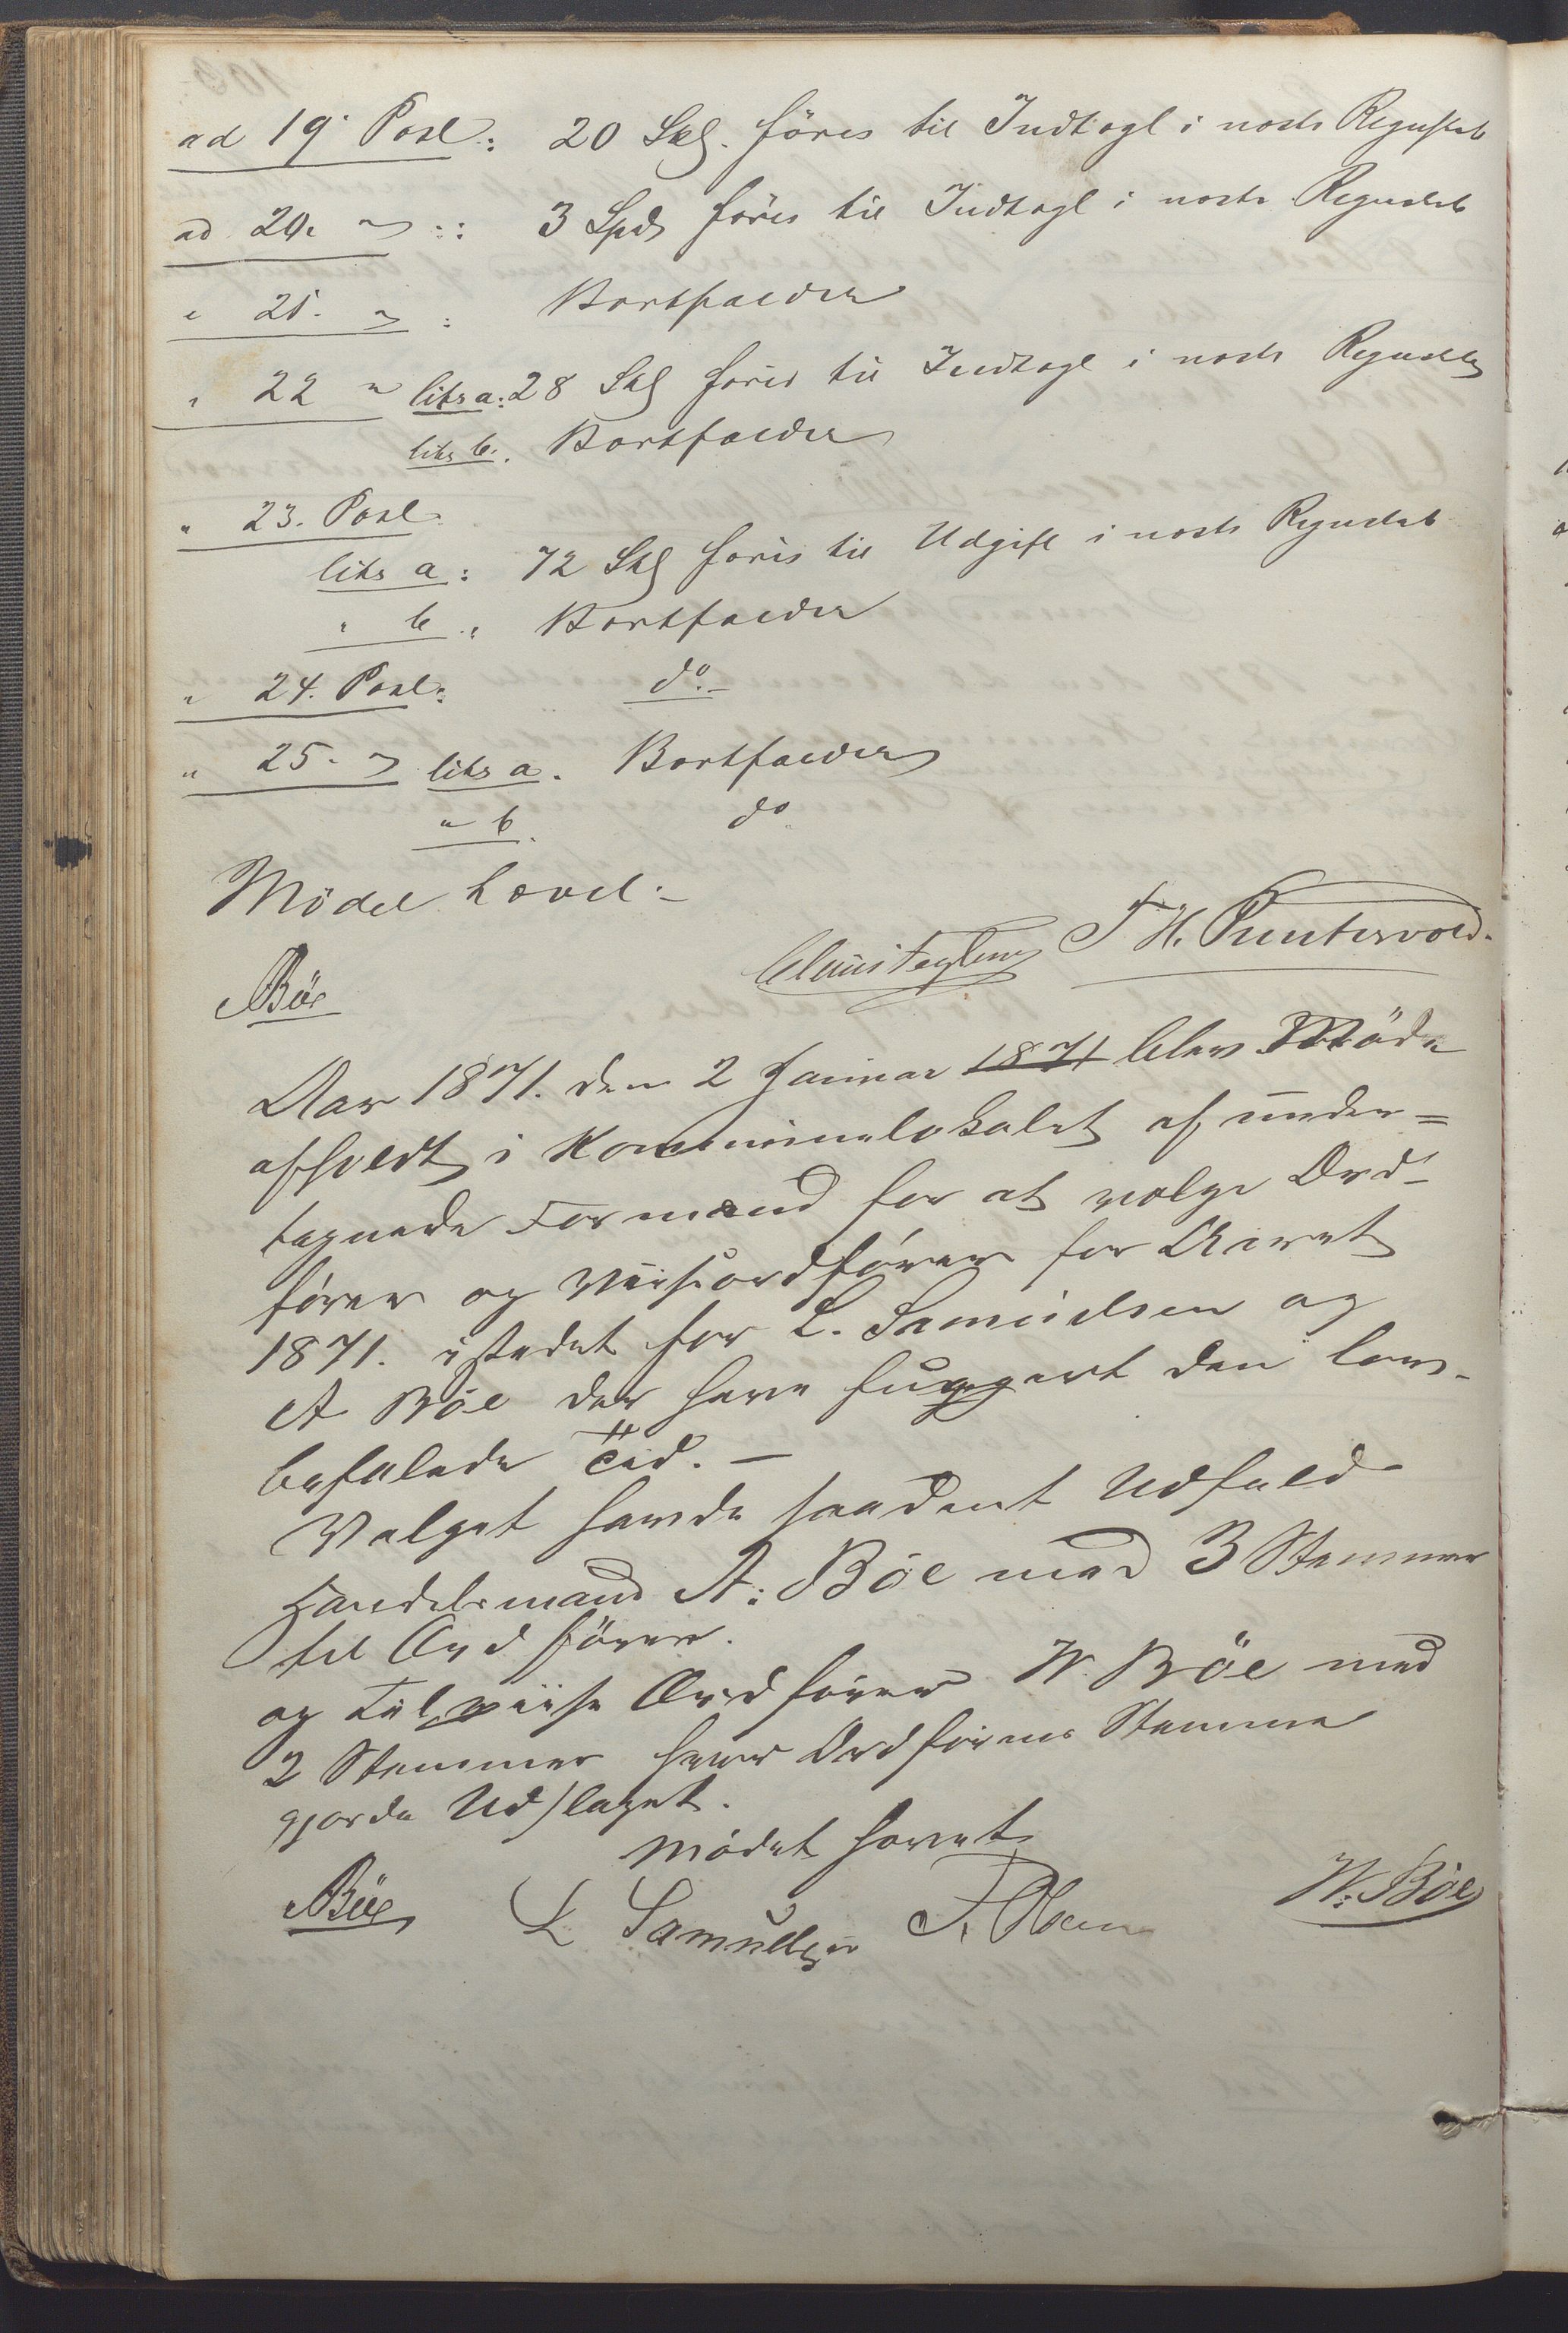 ad 19 Post: 20 Skl. föres til Indtægt i næste Regnskab
ad 20 " : 3 Spd föres til Indtægt i næste Regnskab
" 21. " : Bortfalder
" 22 " litr a: 28 Skl föres til Indtægt i næste Regnskab
litr b. Bortfalder
" 23. Post
litr a: 72 Skl föres til Udgift i næste Regnskab
" b " Bortfalder
" 24. Post: do.-
" 25. " litr a. Bortfalder
" b. do
Mödet hævet.-
T H. Puntervold.
ABöe
Aar 1871. den 2 Januar 1871 blev Möde
afholdt i Kommunelokalet af under=
tegnede Formænd for at vælge Ord-
förer og Viiseordförer for Aaret
1871. istedet for L. Samuelsen og
A Böe der have fungert den lov-
befalede Tid. -
Valget havde saadant Udfald
Handelsmand A: Böe med 3 Stemmer
til Ordförer.
og til viise Ordförer W. Böe med
2 Stemmer hvor Ordförerens Stemme
gjorde Udslaget.
Mödet hævet
ABöe L Samuelsen T. Olsen W. Böe